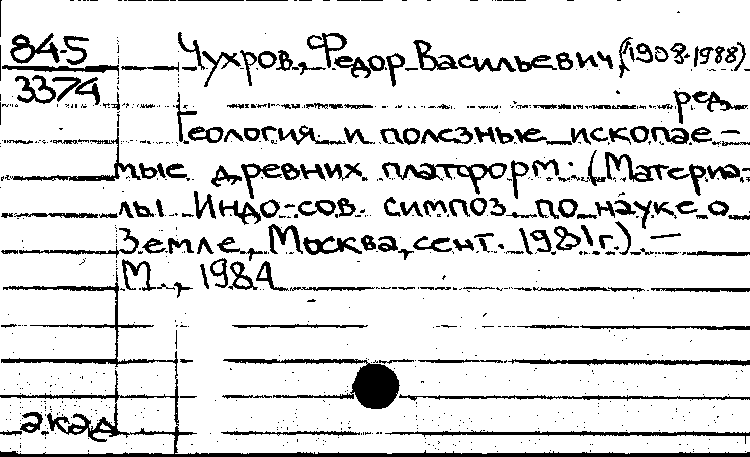 845 Чухров, Федор Васильевич, (1908-1988)
3374 ред.
Геология и полезные ископае-
мые древних платформ: (Материа-
лы Индо-сов. симпоз. по науке о
Земле, Москва, сент. 1981г.) —
М., 1984
акад